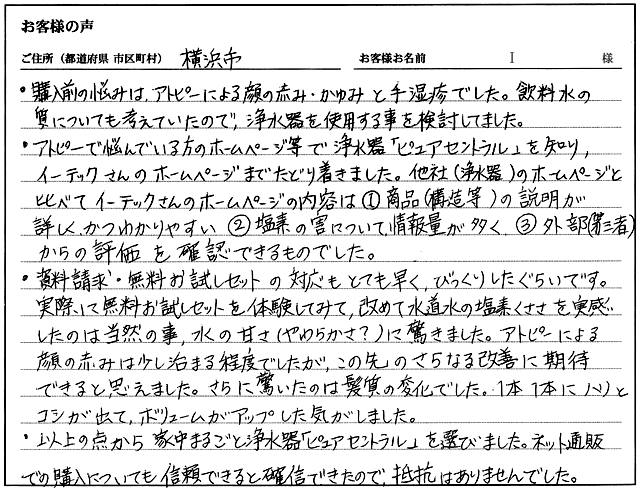 お客様の声
ご住所（都道府県 市区町村） 横浜市 お客様お名前 I 様
・購入前の悩みは、アトピーによる顔の赤み・かゆみと手湿疹でした。飲料水の
質についても考えていたので、浄水器を使用する事を検討してました。
・アトピーで悩んでいる方のホームページ等で浄水器「ピュアセントラル」を知り、
イーテックさんのホームページまでたどり着きました。他社(浄水器)のホームページと
比べてイーテックさんのホームページの内容は①商品(構造等)の説明が
詳しく、かつわかりやすい ②塩素の害について、情報量が多く、③外部(第三者)
からの評価を確認できるものでした。
・資料請求・無料お試しセットの対応もとても早く、びっくりしたぐらいです。
実際に無料お試しセットを体験してみて、改めて水道水の塩素くささを実感
したのは当然の事、水の甘さ(やわらかさ？)に驚きました。アトピーによる
顔の赤みは少し治まる程度でしたが、この先のさらなる改善に期待
できると思えました。さらに驚いたのは髪質の変化でした。1本1本にハリと
コシが出て、ボリュームがアップした気がしました。
・以上の点から家中まるごと浄水器「ピュアセントラル」を選びました。ネット通販
での購入についても信頼できると確信できたので、抵抗はありませんでした。